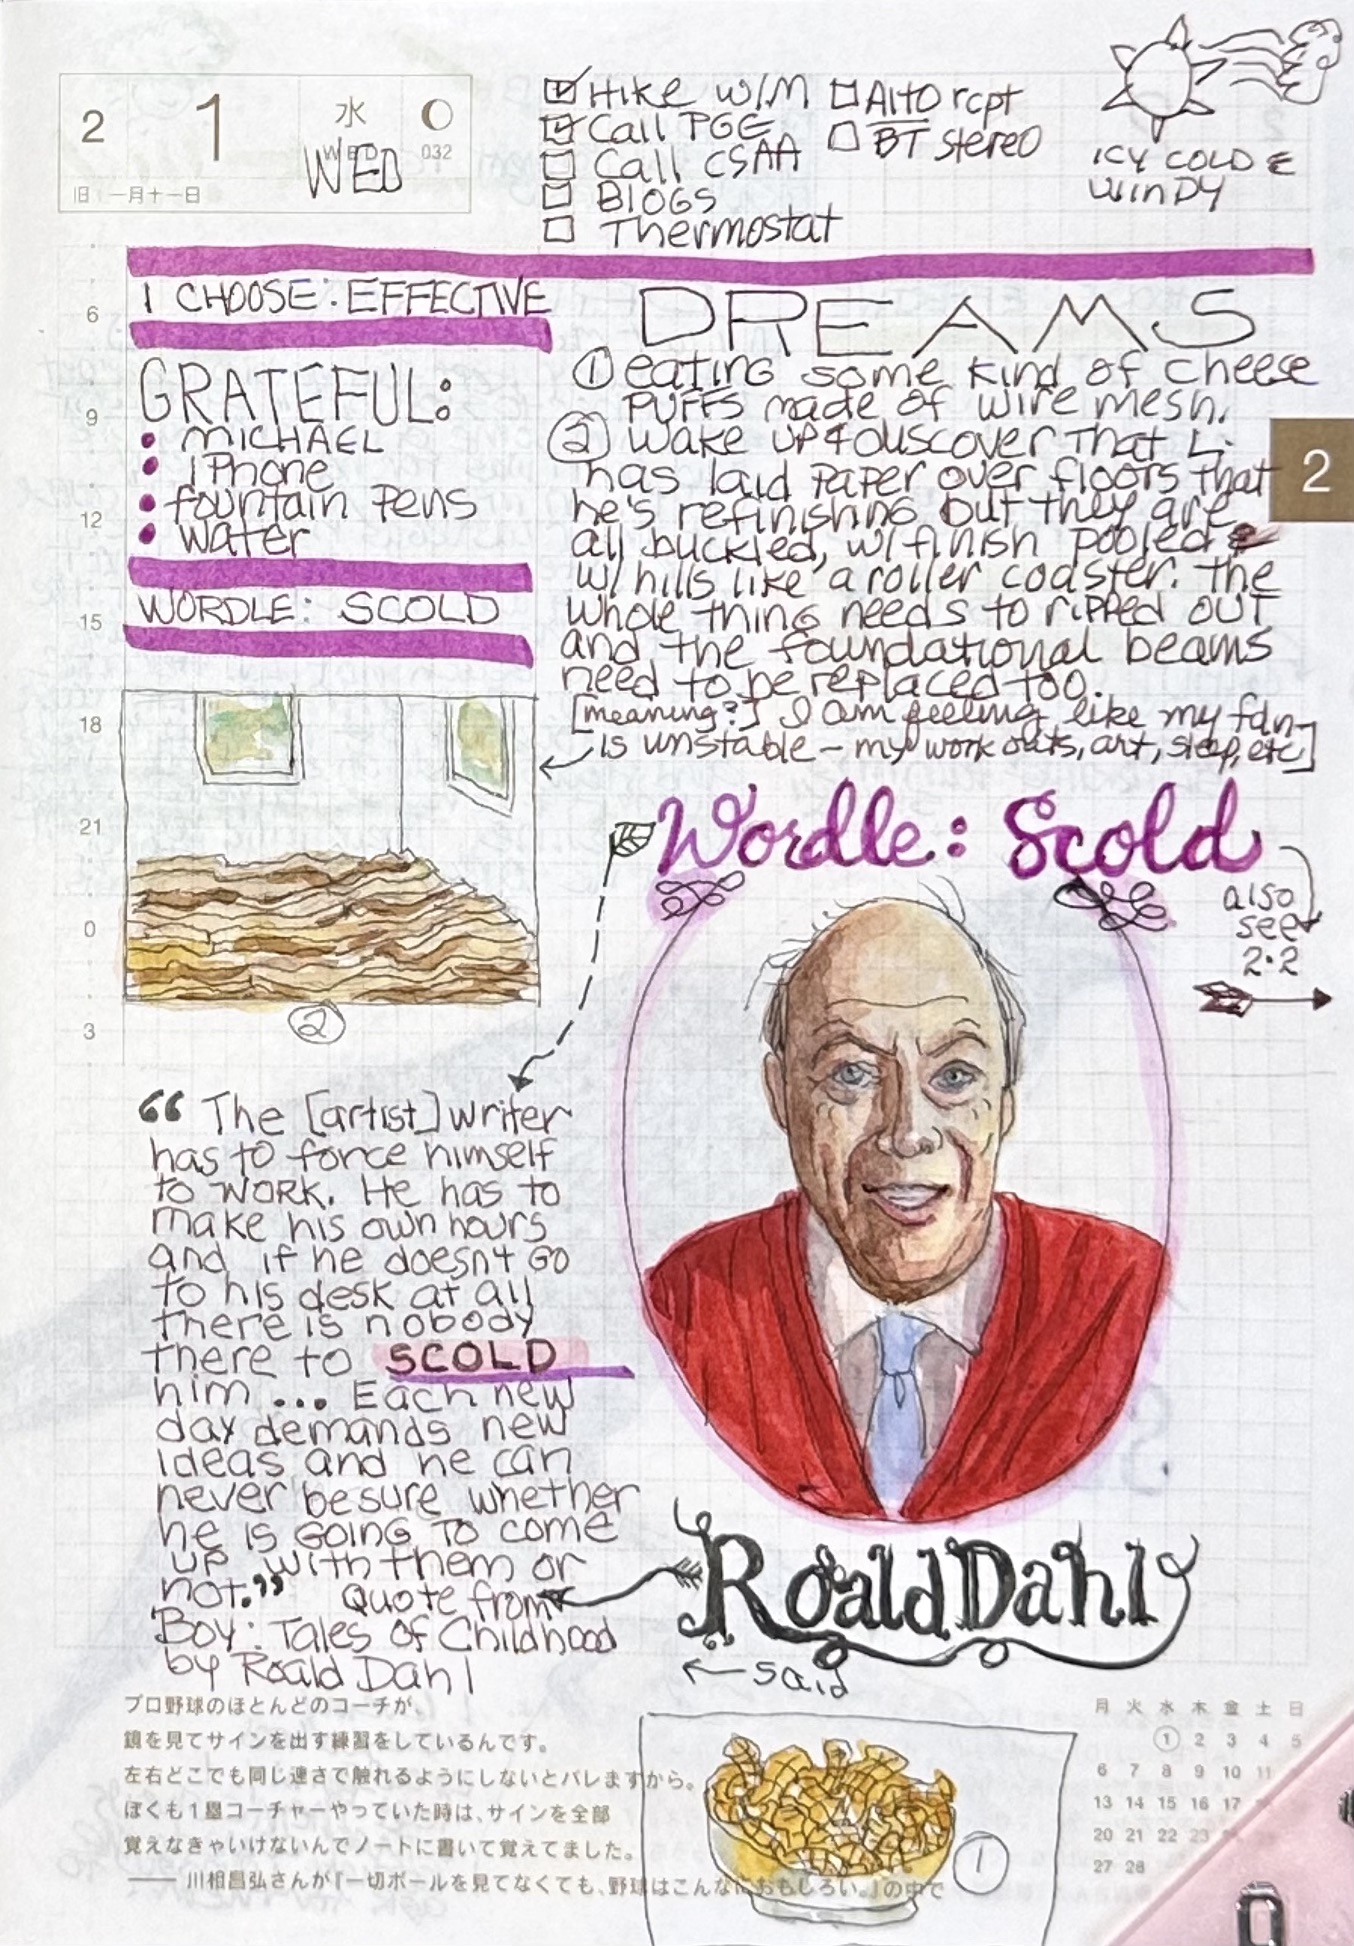 2 1 水 WED 032
WED
旧 一月十一日
☑ Hike w/M
☑ Call PGE
☐ Call CSAA
☐ Blogs
☐ Thermostat
☐ Alto rcpt
☐ BT stereo
ICY COLD &
WINDY
I CHOOSE: EFFECTIVE
GRATEFUL:
• MICHAEL
• iPhone
• fountain pens
• water
WORDLE: SCOLD
DREAMS
① eating some kind of cheese
PUFFS made of wire mesh.
② Wake up & duscover that L.
has laid paper over floors that
he's refinishing but they are
all buckled, w/finish pooled &
w/hills like a roller coaster. The
whole thing needs to ripped out
and the foundational beams
need to be replaced too.
[meaning?] I am feeling like my fdn
is unstable – my work outs, art, sleep, etc]
2
6
9
12
15
18
21
0
3
②
Wordle: Scold
also
see
2·2
“The [artist] writer
has to force himself
to WORK. He has to
make his own hours
and if he doesn't go
to his desk at all
there is nobody
there to SCOLD
him ... Each new
day demands new
ideas and he can
never be sure whether
he is GOING TO come
up with them or
not.” Quote from
Boy: Tales of Childhood
by Roald Dahl
Roald Dahl
said
プロ野球のほとんどのコーチが、
鏡を見てサインを出す練習をしているんです。
左右どこでも同じ速さで触れるようにしないとバレますから。
ぼくも1塁コーチャーやっていた時は、サインを全部
覚えなきゃいけないんでノートに書いて覚えてました。
—— 川相昌弘さんが『一切ボールを見てなくても、野球はこんなにおもしろい。』の中で
①
月 火 水 木 金 土 日
1 2 3 4 5
6 7 8 9 10 11
13 14 15 16 17
20 21 22 23
27 28